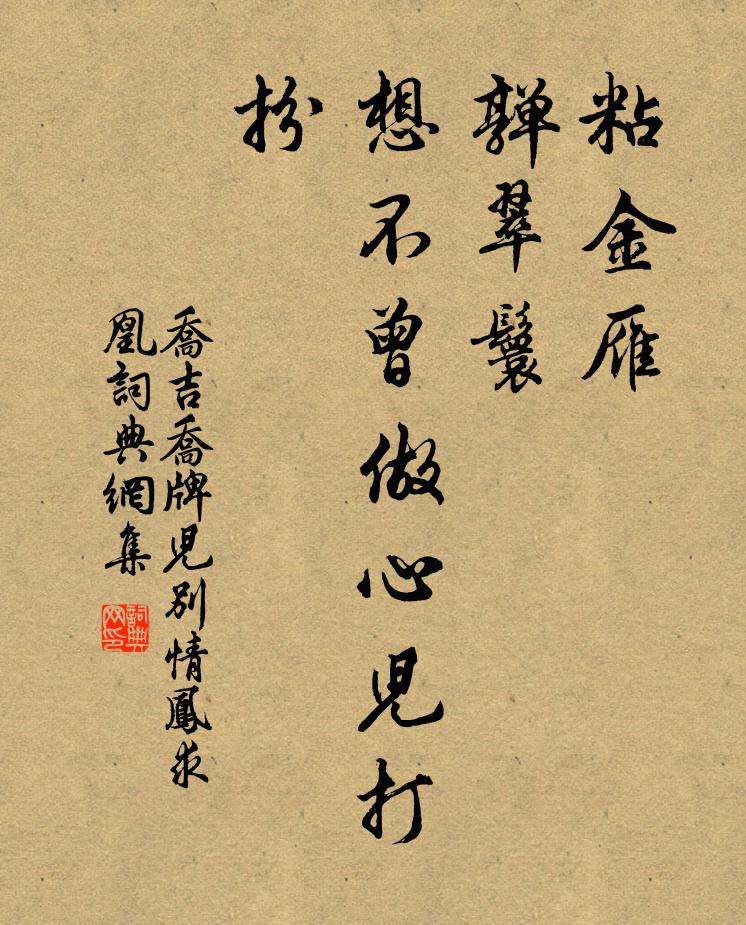 粘金雁
嚲翠鬟
想不曾做心兒打
扮
喬吉喬牌兒別情鳳求
凰詞典網集
詞典
网印